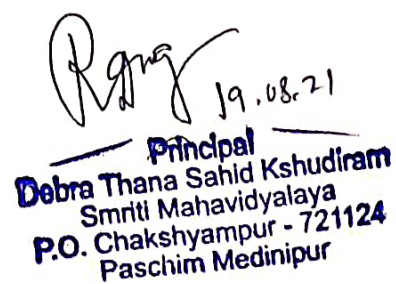 19.08.21
Principal
Debra Thana Sahid Kshudiram
Smriti Mahavidyalaya
P.O. Chakshyampur - 721124
Paschim Medinipur